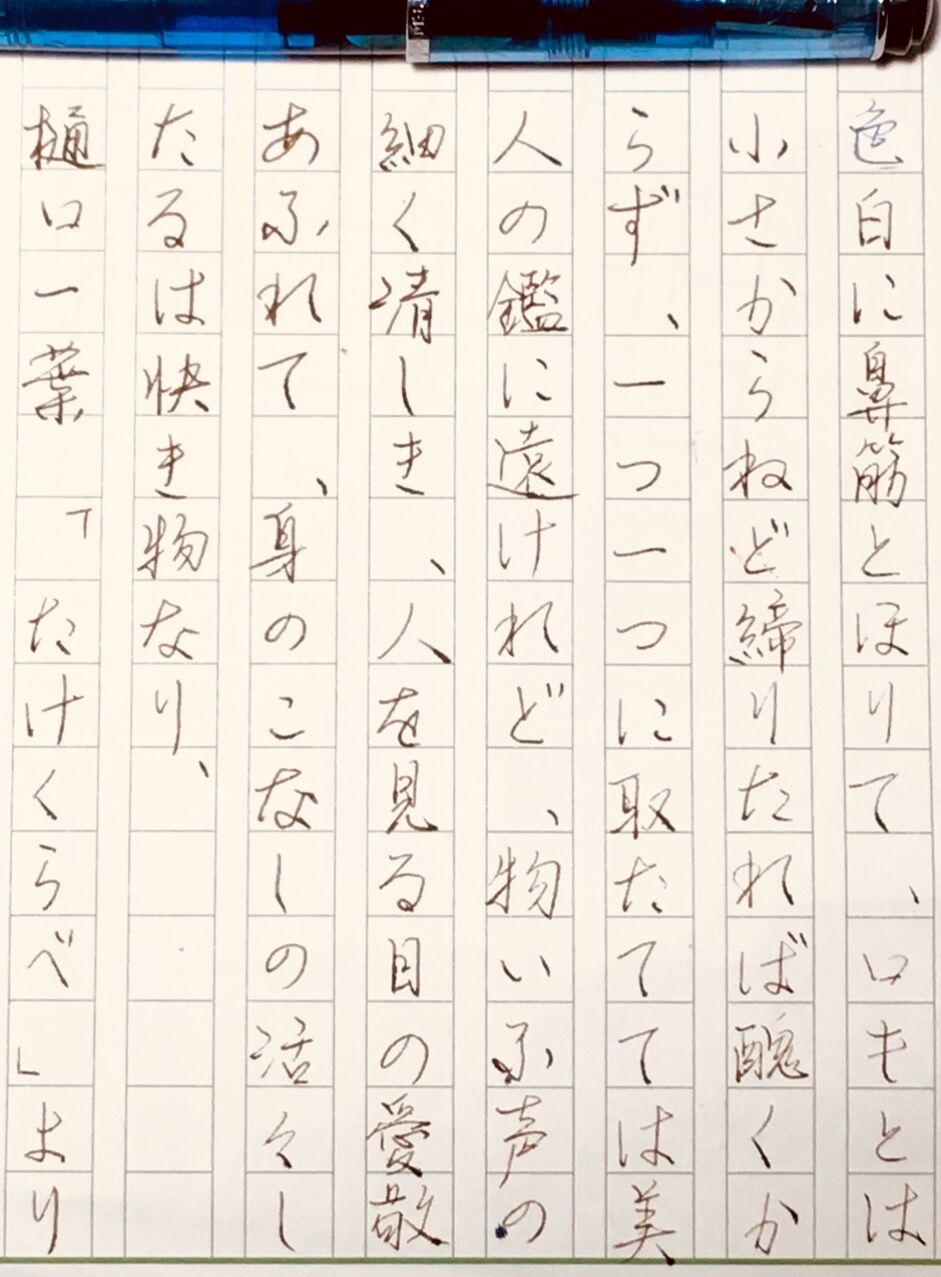 色白に鼻筋とほりて、口もとは
小さからねど締りたれば醜くか
らず、一つ一つに取たてては美
人の鑑に遠けれど、物いふ声の
細く清しき、人を見る目の愛敬
あふれて、身のこなしの活々し
たるは快き物なり、
樋口一葉　「たけくらべ」より